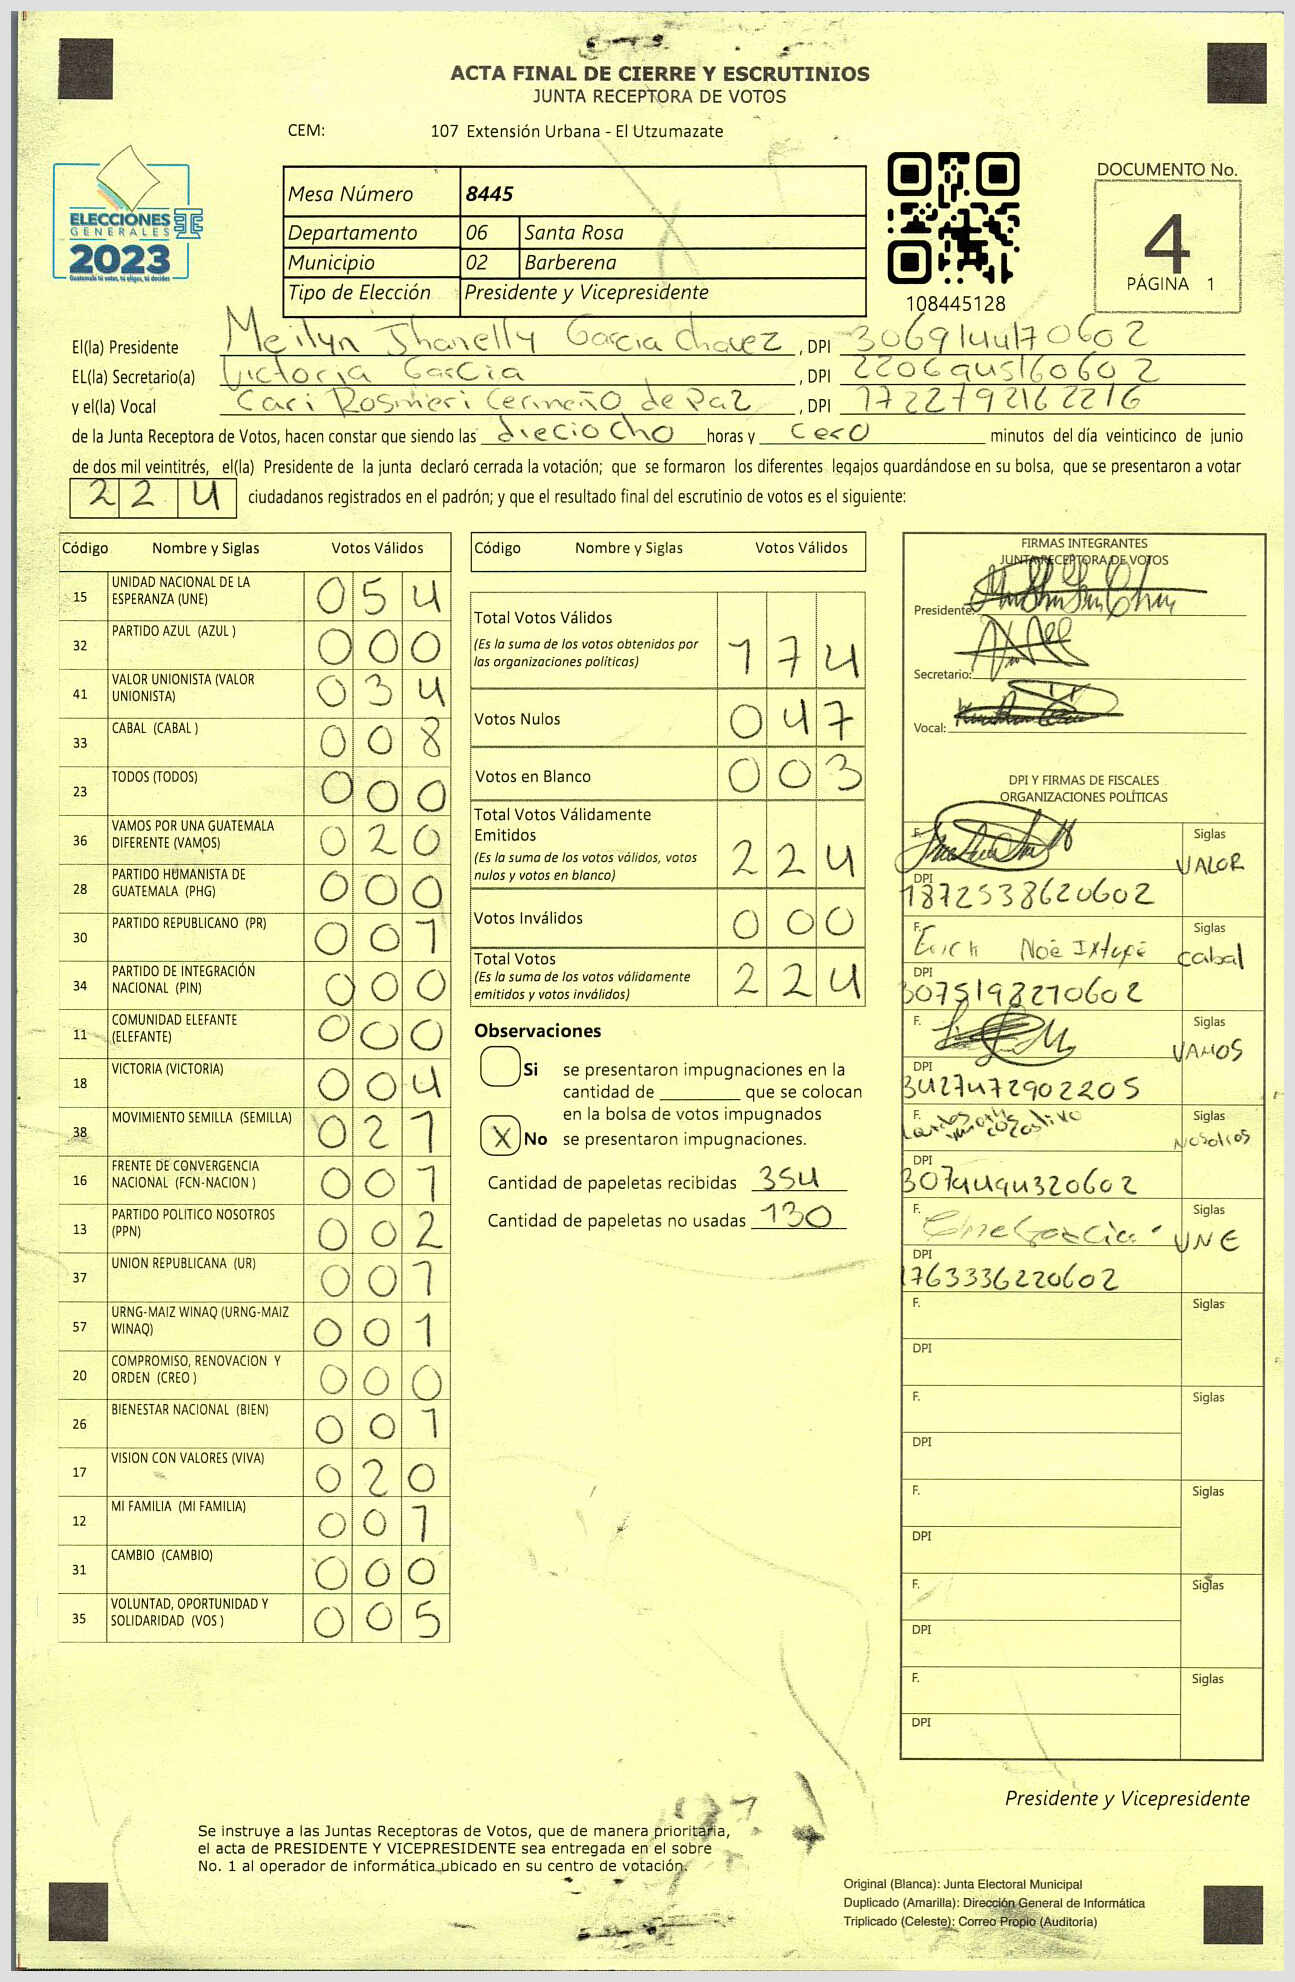 ACTA FINAL DE CIERRE Y ESCRUTINIOS
JUNTA RECEPTORA DE VOTOS
CEM: 107 Extensión Urbana - El Utzumazate
ELECCIONES
GENERALES
2023
Guatemala tú votas, tú eliges, tú decides
Mesa Número 8445
Departamento 06 Santa Rosa
Municipio 02 Barberena
Tipo de Elección Presidente y Vicepresidente
108445128
DOCUMENTO No.
4
PÁGINA 1
El(la) Presidente Meilyn Jhanelly Garcia Chavez , DPI 3069144170602
EL(la) Secretario(a) Victoria Garcia , DPI
y el(la) Vocal Cari Rosmeri Cermeño de Paz , DPI 1722792162216
de la Junta Receptora de Votos, hacen constar que siendo las dieciocho horas y cero minutos del día veinticinco de junio
de dos mil veintitrés, el(la) Presidente de la junta declaró cerrada la votación; que se formaron los diferentes legajos guardándose en su bolsa, que se presentaron a votar
224 ciudadanos registrados en el padrón; y que el resultado final del escrutinio de votos es el siguiente:
Código Nombre y Siglas Votos Válidos
15 UNIDAD NACIONAL DE LA ESPERANZA (UNE) 054
32 PARTIDO AZUL (AZUL ) 000
41 VALOR UNIONISTA (VALOR UNIONISTA) 034
33 CABAL (CABAL ) 008
23 TODOS (TODOS) 000
36 VAMOS POR UNA GUATEMALA DIFERENTE (VAMOS) 020
28 PARTIDO HUMANISTA DE GUATEMALA (PHG) 000
30 PARTIDO REPUBLICANO (PR) 001
34 PARTIDO DE INTEGRACIÓN NACIONAL (PIN) 000
11 COMUNIDAD ELEFANTE (ELEFANTE) 000
18 VICTORIA (VICTORIA) 004
38 MOVIMIENTO SEMILLA (SEMILLA) 021
16 FRENTE DE CONVERGENCIA NACIONAL (FCN-NACION ) 001
13 PARTIDO POLITICO NOSOTROS (PPN) 002
37 UNION REPUBLICANA (UR) 001
57 URNG-MAIZ WINAQ (URNG-MAIZ WINAQ) 001
20 COMPROMISO, RENOVACION Y ORDEN (CREO ) 000
26 BIENESTAR NACIONAL (BIEN) 001
17 VISION CON VALORES (VIVA) 020
12 MI FAMILIA (MI FAMILIA) 001
31 CAMBIO (CAMBIO) 000
35 VOLUNTAD, OPORTUNIDAD Y SOLIDARIDAD (VOS ) 005
Código Nombre y Siglas Votos Válidos
Total Votos Válidos
(Es la suma de los votos obtenidos por
las organizaciones políticas) 174
Votos Nulos 047
Votos en Blanco 003
Total Votos Válidamente
Emitidos
(Es la suma de los votos válidos, votos
nulos y votos en blanco) 224
Votos Inválidos 000
Total Votos
(Es la suma de los votos válidamente
emitidos y votos inválidos) 224
Observaciones
Si se presentaron impugnaciones en la
cantidad de ________ que se colocan
en la bolsa de votos impugnados
X No se presentaron impugnaciones.
Cantidad de papeletas recibidas 354
Cantidad de papeletas no usadas 130
FIRMAS INTEGRANTES
JUNTA RECEPTORA DE VOTOS
Presidente:
Secretario:
Vocal:
DPI Y FIRMAS DE FISCALES
ORGANIZACIONES POLÍTICAS
F. Siglas VALOR
DPI 1872538620602
F. Erick Noé Siglas Cabal
DPI 3075198270602
F. Siglas VAMOS
DPI 3427472902205
F. Siglas Nosotros
DPI 3074494320602
F. Siglas UNE
DPI 1763336220602
F. Siglas
DPI
F. Siglas
DPI
F. Siglas
DPI
F. Siglas
DPI
F. Siglas
DPI
Presidente y Vicepresidente
Se instruye a las Juntas Receptoras de Votos, que de manera prioritaria,
el acta de PRESIDENTE Y VICEPRESIDENTE sea entregada en el sobre
No. 1 al operador de informática ubicado en su centro de votación.
Original (Blanca): Junta Electoral Municipal
Duplicado (Amarilla): Dirección General de Informática
Triplicado (Celeste): Correo Propio (Auditoría)